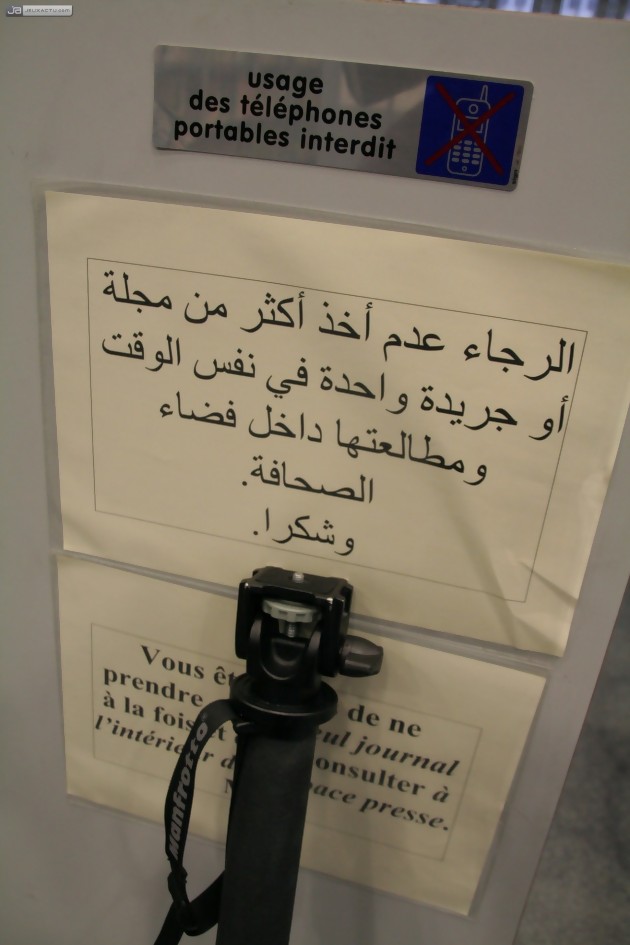 Ja JEUXACTU.com
usage
des téléphones
portables interdit
الرجاء عدم أخذ أكثر من مجلة
أو جريدة واحدة في نفس الوقت
ومطالعتها داخل فضاء
الصحافة.
وشكرا.
Vous de ne
prendre
à la fois et journal
l'intérieur consulter à
presse.
Manfrotto